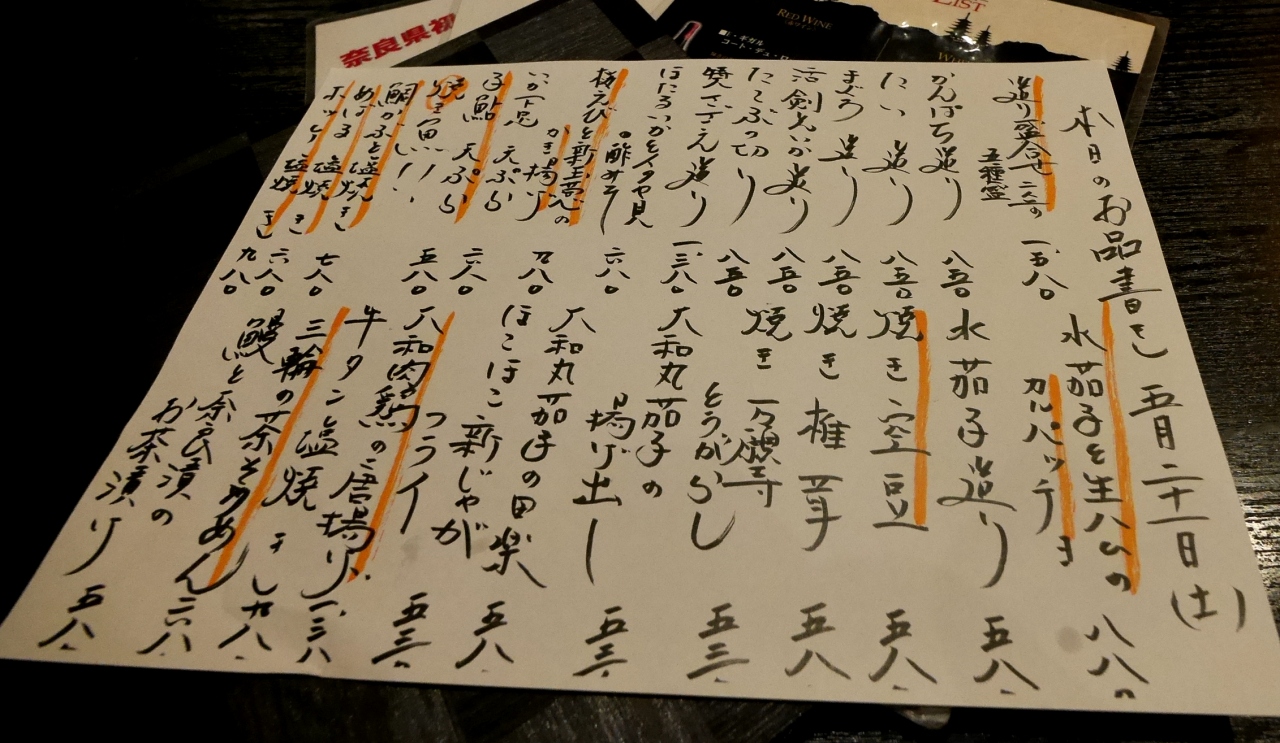 本日のお品書き 五月二十一日(土)
造り盛合せ 二人前
五種盛 一、五八〇
かんぱち造り 八五〇
たい 造り 八五〇
まぐろ 造り 八五〇
活剣先いか造り 八五〇
たこぶつ切り 八五〇
焼さざえ造り 一、三八〇
ほたるいかとイタヤ貝
の酢みそ 六八〇
桜えびと新玉ねぎの
かき揚げ 九八〇
いか下足 天ぷら 六八〇
子鮎 天ぷら
鯛かぶと塩焼き
めばる 塩焼き
塩焼き
七八〇
六八〇
九八〇
水茄子と生ハムの
カルパッチョ 八八〇
水茄子造り 五八〇
焼き空豆 五八〇
焼き椎茸 五八〇
焼き万願寺
とうがらし 五三〇
大和丸茄子の
揚げ出し 五三〇
大和丸茄子の田楽 五八〇
ほこほこ新じゃが
フライ 五三〇
大和肉鶏の唐揚げ 一、二八〇
牛タンと塩焼き
三輪の茶そうめん
鰻と奈良漬の
お茶漬け 五八〇
奈良県初
RED WINE
LIST